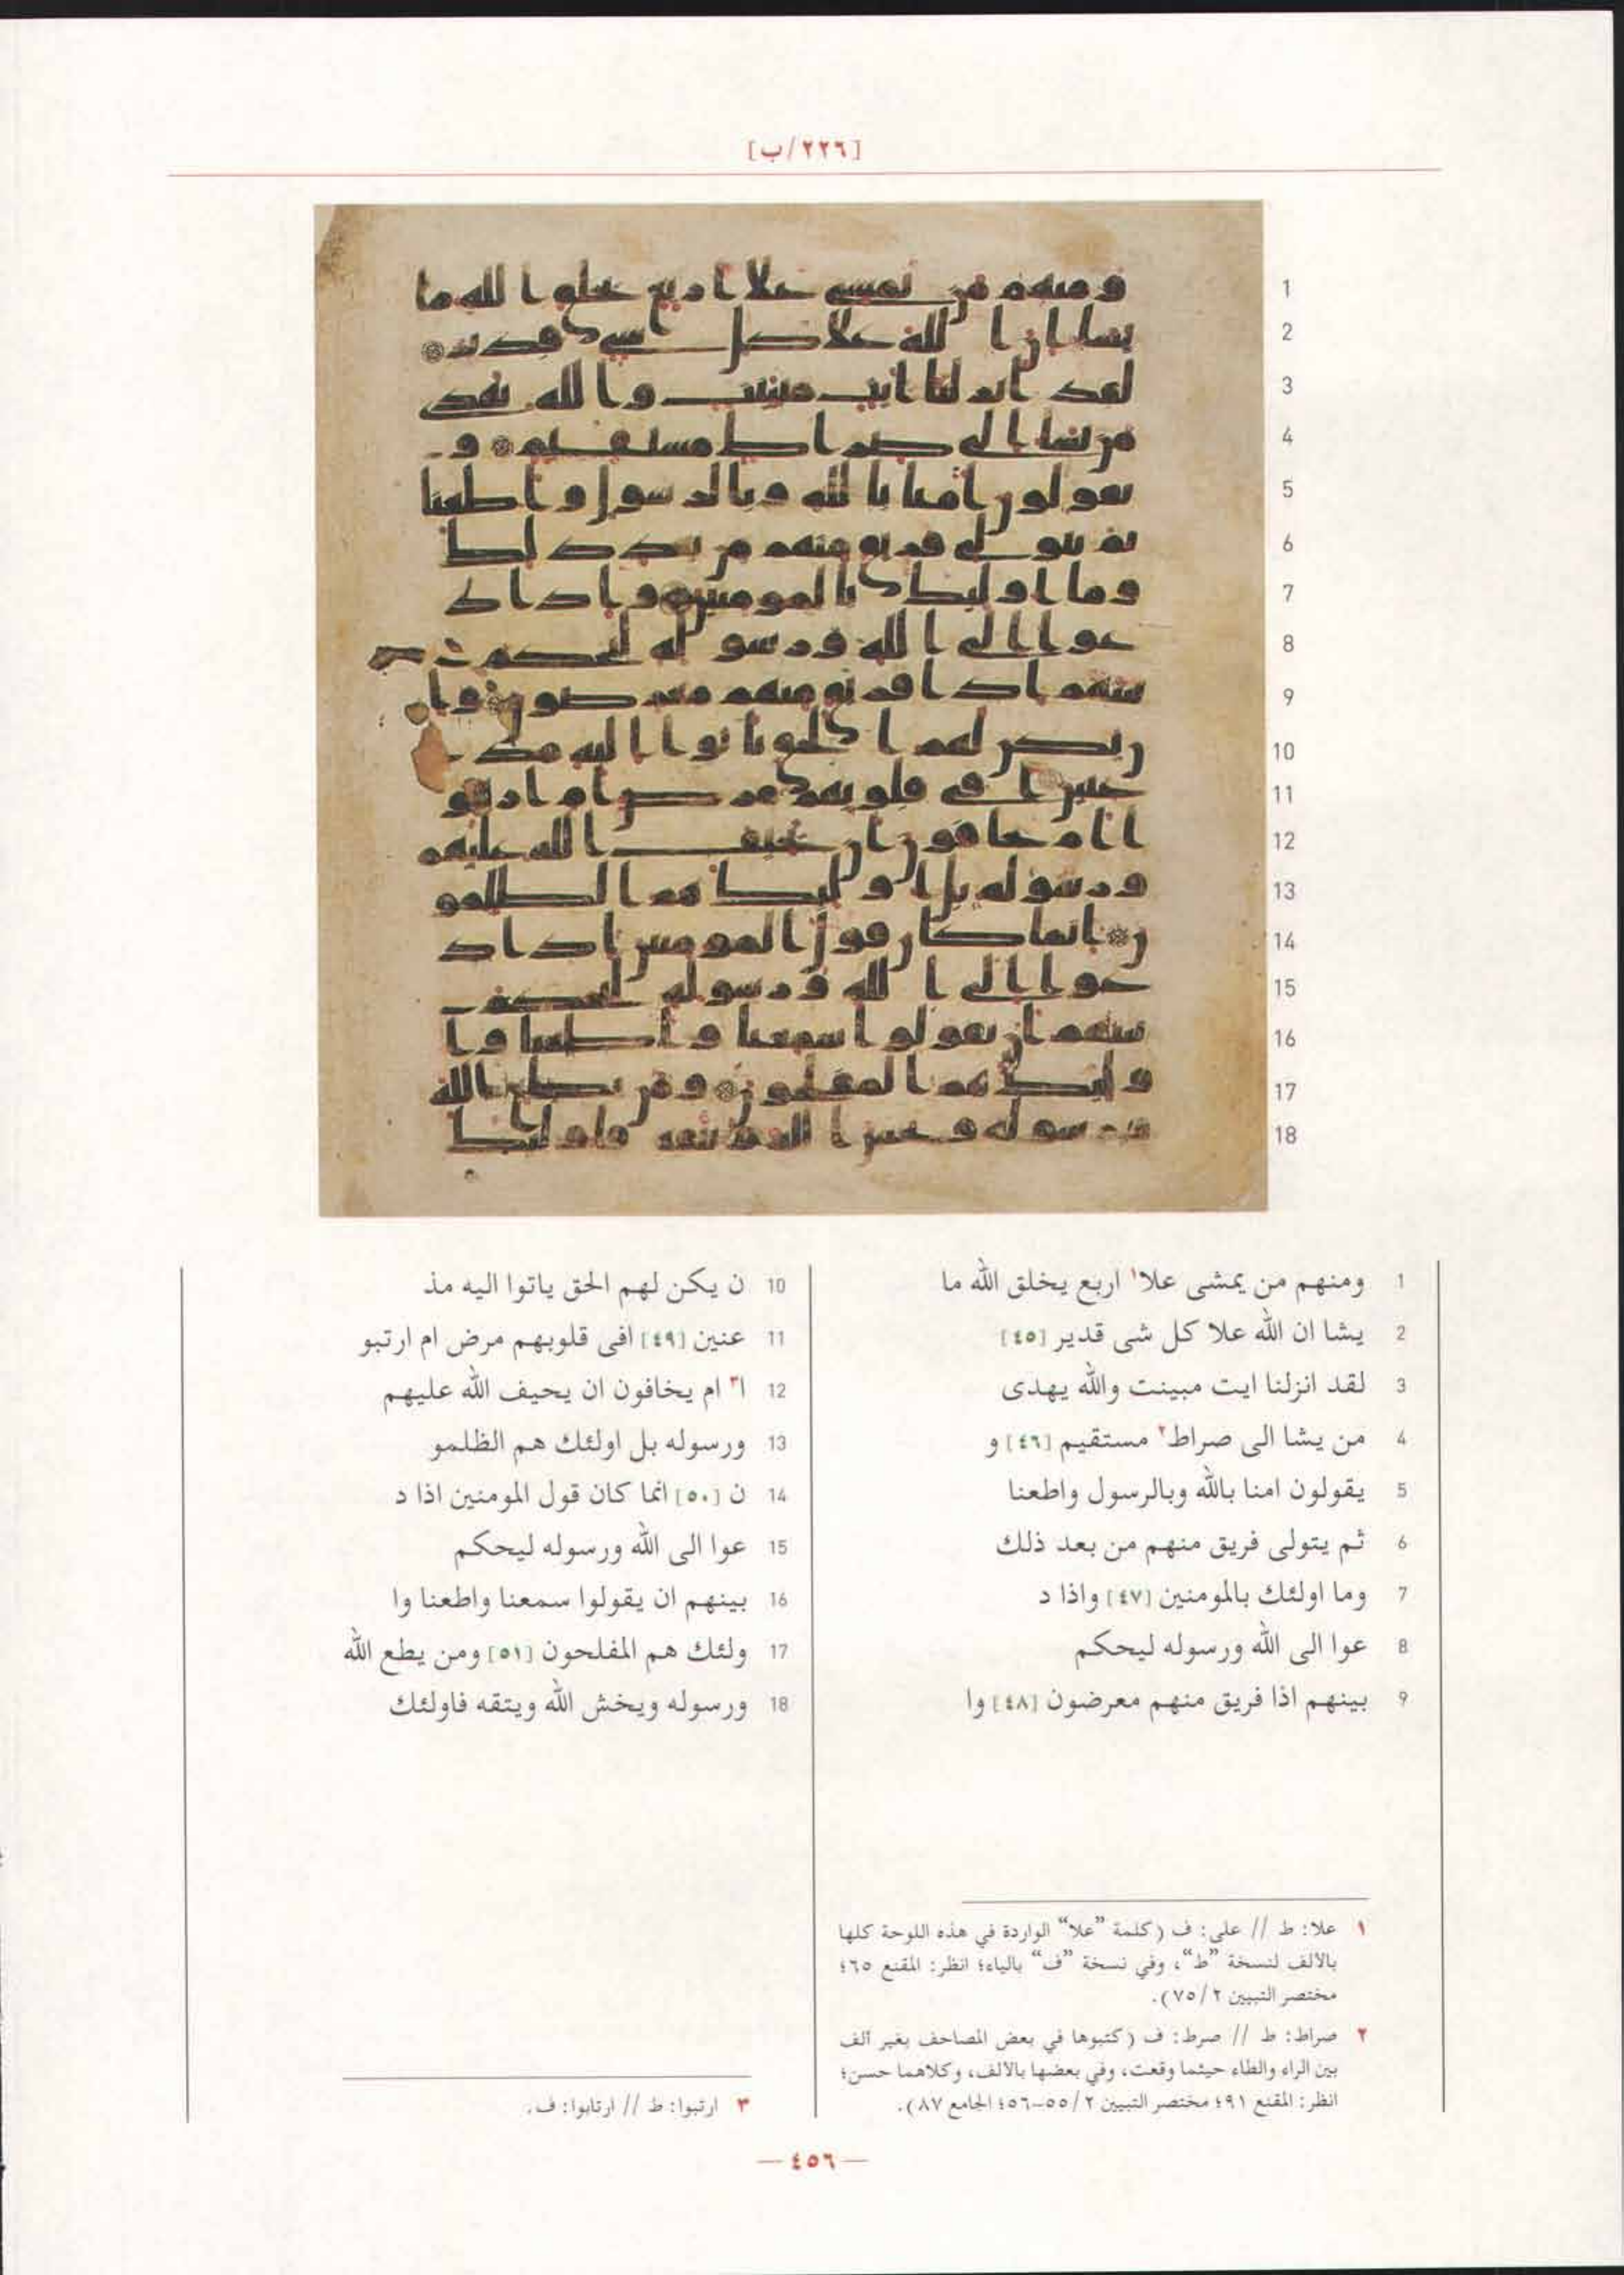 [٢٢٦/ب]
1 ومنهم من يمشى علا١ اربع يخلق الله ما
2 يشا ان الله علا كل شى قدير [٤٥]
3 لقد انزلنا ايت مبينت والله يهدى
4 من يشا الى صراط٢ مستقيم [٤٦] و
5 يقولون امنا بالله وبالرسول واطعنا
6 ثم يتولى فريق منهم من بعد ذلك
7 وما اولئك بالمومنين [٤٧] واذا د
8 عوا الى الله ورسوله ليحكم
9 بينهم اذا فريق منهم معرضون [٤٨] وا
10 ن يكن لهم الحق ياتوا اليه مذ
11 عنين [٤٩] افى قلوبهم مرض ام ارتبو
12 ا٣ ام يخافون ان يحيف الله عليهم
13 ورسوله بل اولئك هم الظلمو
14 ن [٥٠] انما كان قول المومنين اذا د
15 عوا الى الله ورسوله ليحكم
16 بينهم ان يقولوا سمعنا واطعنا وا
17 ولئك هم المفلحون [٥١] ومن يطع الله
18 ورسوله ويخش الله ويتقه فاولئك
١ علا: ط // على: ف (كلمة "علا" الواردة في هذه اللوحة كلها
بالألف لنسخة "ط"، وفي نسخة "ف" بالياء؛ انظر: المقنع ٦٥؛
مختصر التبيين ٧٥/٢).
٢ صراط: ط // صرط: ف (كتبوها في بعض المصاحف بغير ألف
بين الراء والطاء حيثما وقعت، وفي بعضها بالألف، وكلاهما حسن؛
انظر: المقنع ٩١؛ مختصر التبيين ٥٥/٢-٥٦؛ الجامع ٨٧).
٣ ارتبوا: ط // ارتابوا: ف.
— ٤٥٦ —